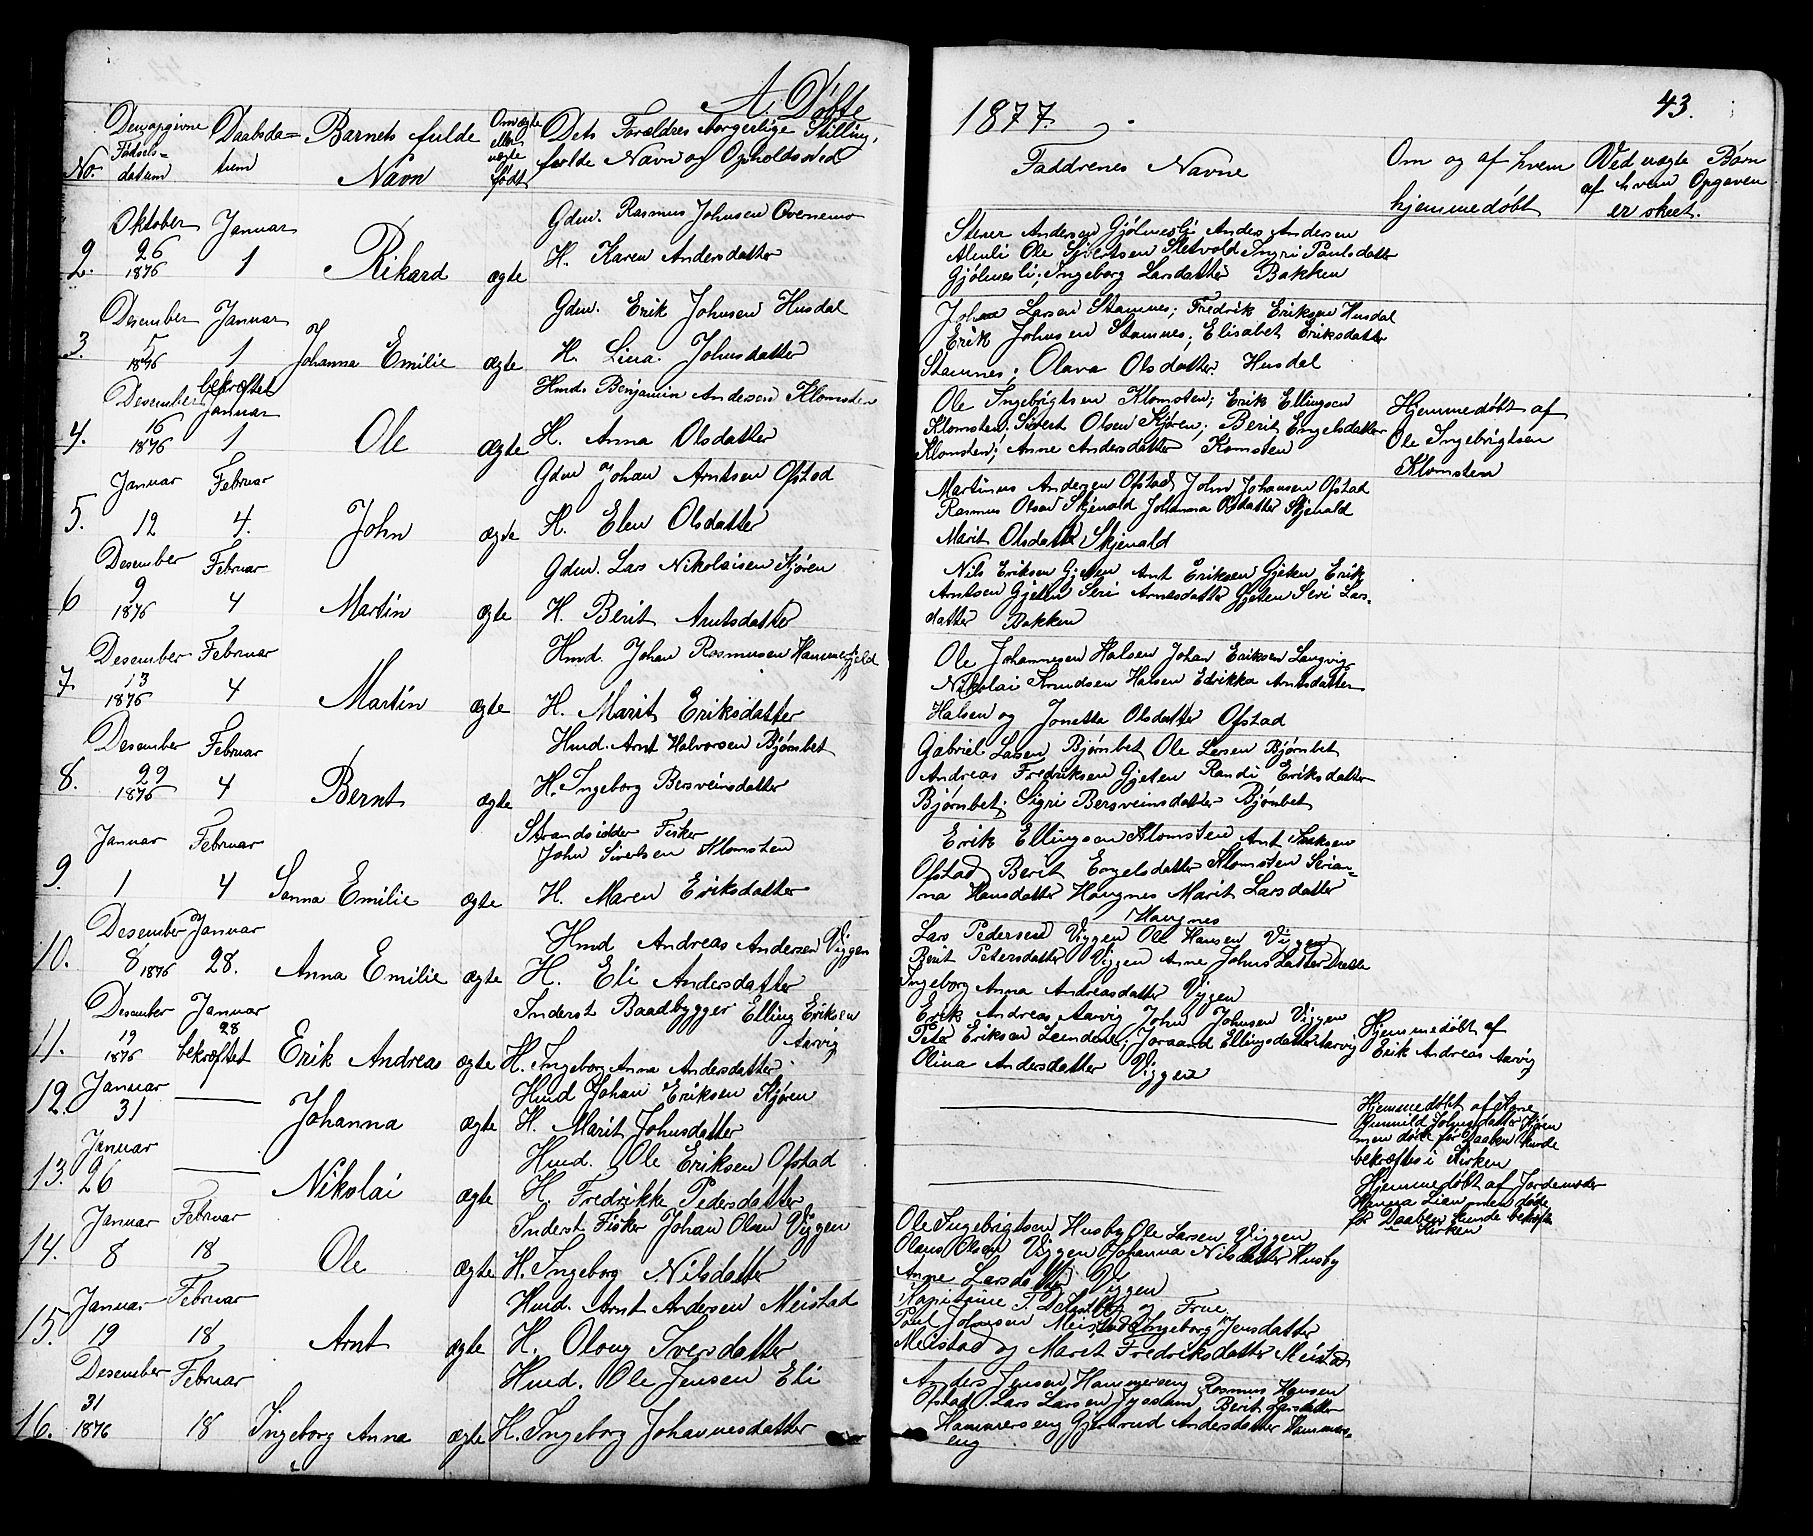 A. Døbte
Den opgivne Fødsels=
datum
Daabsda=
tum
Barnets fulde
Navn
Om ægte
eller
uægte
født
Dets Forældres borgerlige Stilling,
fulde Navn og Opholdssted
No.
Oktober Januar
Gdm. Rasmus Johnsen Overnemo
2. 26 1 Rikard ægte H. Karen Andersdatter
1876
Desember Januar
Gdm. Erik Johnsen Husdal
3. 5 1 Johanna Emilie ægte H. Lina Johnsdatter
1876
bekræftet
Desember Januar
Hmd. Benjamin Andersen Klomsten
4. 16 1 Ole ægte H. Anna Olsdatter
1876
Januar Februar
Gdm Johan Arntsen Ofstad
5. 12 4. John ægte H. Elen Olsdatter
Desember Februar
Gdm. Lars Nikolaisen Kjøren
6 9 4 Martin ægte H. Berit Arntsdatter
1876
Desember Februar
Hmd. Johan Rasmusen Hammerfjeld
7 13 4 Martin ægte H. Marit Eriksdatter
1876
Desember Februar
Hmd. Arnt Halvorsen Bjørnbet
8. 29 4 Bernt ægte H. Ingeborg Bersveinsdatter
1876
Januar Februar
Strandsidder Fisker
John Sivertsen Klomsten
9. 1 4 Sanna Emilie ægte H. Maren Eriksdatter
Desember Januar
Hmd Andreas Andersen Viggen
10. 8 1876 28. Anna Emilie ægte H. Eli Andersdatter
Desember Januar
Inderst Baadbygger Elling Eriksen
Aarvig
11. 19 28
1876 bekræftet Erik Andreas ægte H. Ingeborg Anna Andersdatter
Januar
Hmd Johan Eriksen Kjøren
12. 31 Johanna ægte H. Marit Johnsdatter
Januar
Hmd. Ole Eriksen Ofstad
13. 26 Nikolai ægte H. Fredrikke Pedersdatter
Januar Februar
Inderst Fisker Johan Olsen Viggen
14. 8 18 Ole ægte H. Ingeborg Nilsdatter
Januar Februar
Hmd. Arnt Andersen Meistad
15. 19 18 Arnt ægte H. Oloug Iversdatter
Desember Februar
Hmd. Ole Jensen Eli
31
16. 1876 18 Ingeborg Anna ægte H. Ingeborg Johannesdatter
1877.
43.
Faddrenes Navne
Om og af hvem
hjemmedøbt
Ved uægte Børn
af hvem Opgaven
er skeet.
Stener Andersen Gjølmesli Anders Andersen
Ole Sivertsen Sletvold Ingri Paulsdatter
Gjølmesli; Ingeborg Larsdatter Bakken
Johan Larsen Stamnes; Fredrik Eriksen Husdal
Erik Johnsen Stamnes; Elisabet Eriksdatter
Stamnes; Olava Olsdatter Husdal
Ole Ingebrigtsen Klomsten; Erik Ellingsen
Klomsten; Sivert Olsen Kjøren; Berit Engelsdatter
Klomsten; Anne Andersdatter Komsten
Hjemmedøbt af
Ole Ingebrigtsen
Klomsten
Martinus Andersen Ofstad John Johansen Ofstad
Rasmus Olsen Skjenald Johanna Olsdatter Skjenald
Marit Olsdatter Skjenald
Nils Eriksen Gjeten Arnt Eriksen Gjeten Erik
Arntsen Gjeten Seri Arntsdatter Gjeten Seri Lars-
datter Bakken
Ole Johannesen Halsen Johan Eriksen Langvig
Nikolai Knudsen Halsen Edrikka Arntsdatter
Halsen og Jonetta Olsdatter Ofstad
Gabriel Larsen Bjørnbet Ole Larsen Bjørnbet
Andreas Fredriksen Gjeten Randi Eriksdatter
Bjørnbet; Sigri Bersveinsdatter Bjørnbet
Erik Ellingsen Klomsten Arnt Eriksen
Ofstad Berit Engelsdatter Klomsten Serian-
na Hansdatter Haugnes Marit Larsdatter
Haugnes
Lars Pedersen Viggen Ole Hansen Viggen
Berit Petersdatter Viggen Anne Johnsdatter
Ingeborg Anna Andreasdatter Viggen
Erik Andreas Aarvig John Johnsen Viggen
Peter Eriksen Lendene; Joraand Ellingsdatter Aarvig
Olina Andersdatter Viggen
Hjemmedøbt af
Erik Andreas Aarvig
Hjemmedøbt af Kone
Gunnild Johnsdatter Kjøren
men døde før Daaben kunde
bekræftes i Kirken
Hjemmedøbt af Jordemoder
Hanna Lian men døde
før Daaben kunde bekræftes
i Kirken
Ole Ingebrigtsen Husby Ole Larsen Viggen
Olaus Olsen Viggen Johanna Nilsdatter Husby
Anne Larsdatter Viggen
Kapitaine T. og Frue
Paul Johnsen Meistad Ingeborg Jensdatter
Meistad og Maret Fredriksdatter Meistad
Anders Jensen Hammerseng Rasmus Hansen
Ofstad Lars Larsen Berit Larsdatter
Hammerseng Gjertrud Andersdatter Hammers-
eng